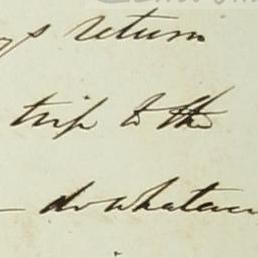 return
trip to the
do whatever